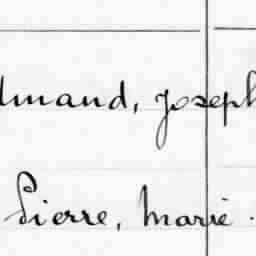 dmand, Joseph
Pierre, Marie.